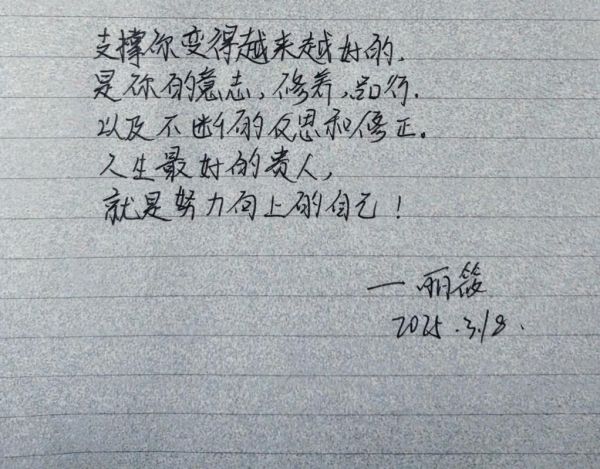 支撑你变得越来越好的,
是你的意志,修养,品行.
以及不断的反思和修正。
人生最好的贵人,
就是努力向上的自己!
一丽筱
2025.3.18.